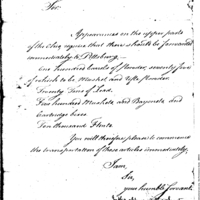 Sir,
Appearances on the upper parts
of the Ohio require that there should be forwarded
immediately to Pittsburg,
One hundred barrels of Powder, seventy five
of which to be Musket and rifle Powder
Twenty Tons of Lead.
Five hundred Muskets and Bayonets, and
Cartridge boxes
Ten thousand Flints.
You will therefore please to commence
the transportation of these articles immediately,
I am,
Sir,
your humble Servant,